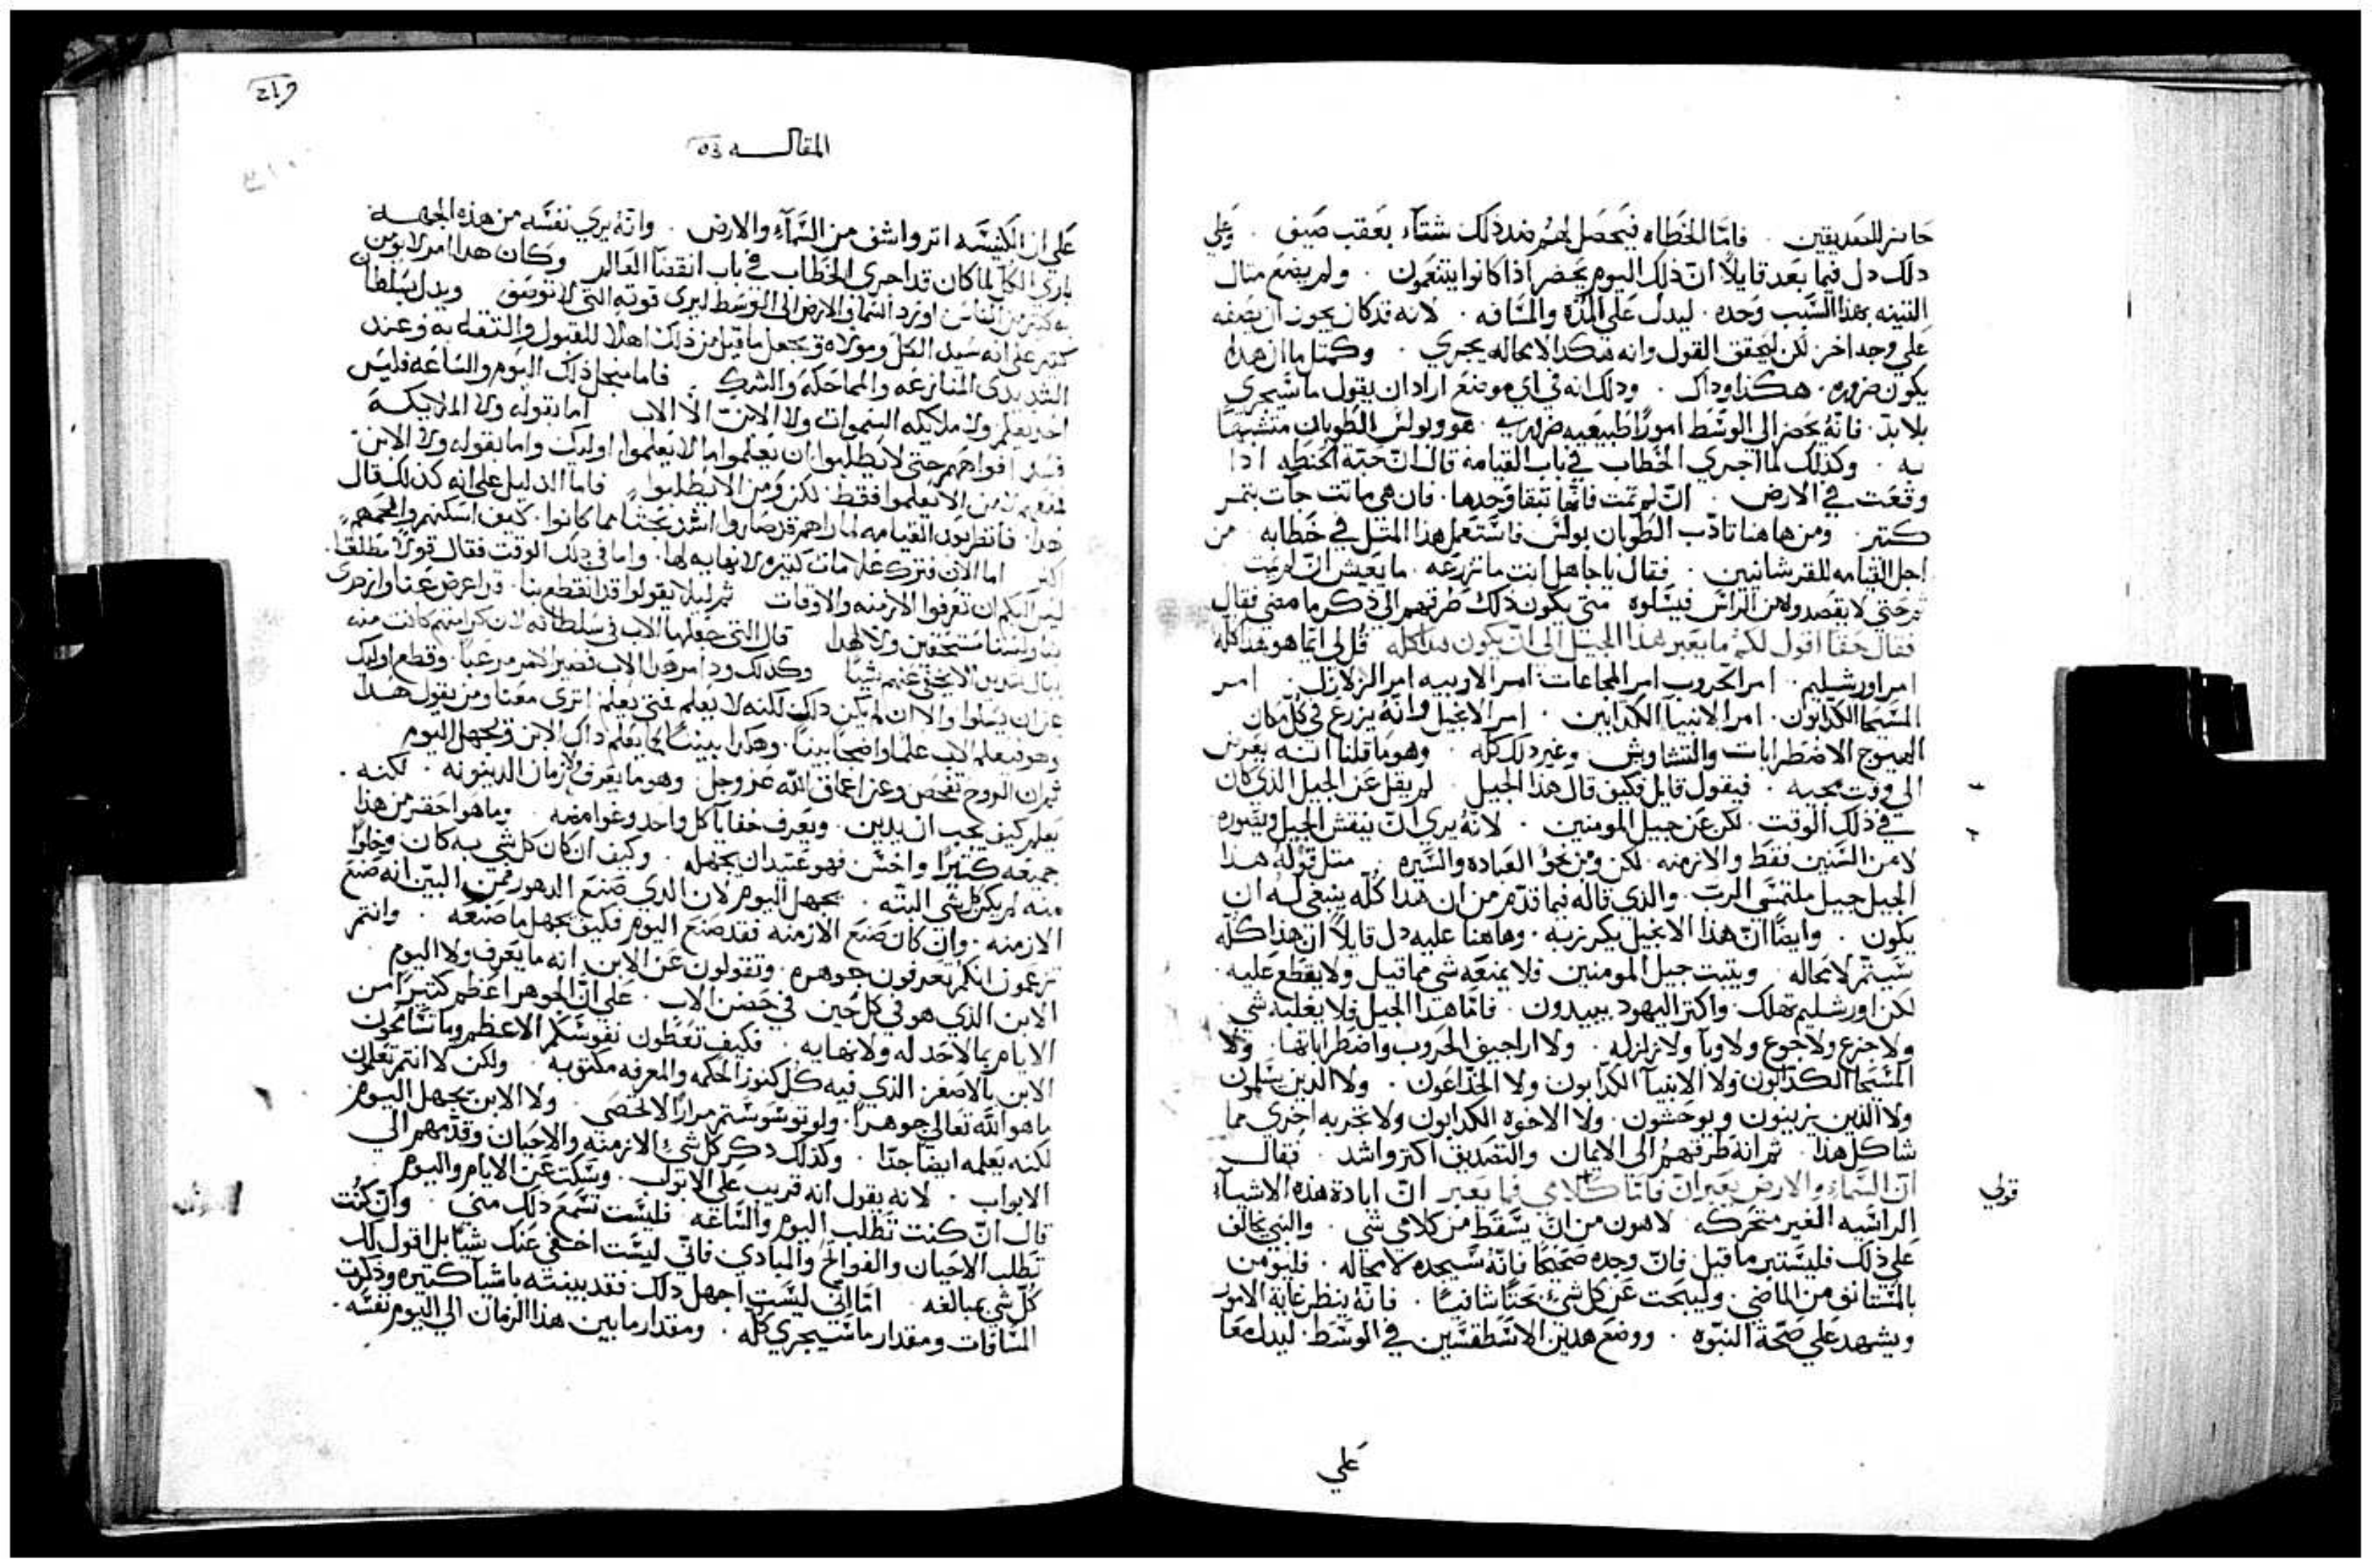 حاضر للصديقين . فامّا الخطاه فيحصل لهم ضد ذلك شتآء بعقب صيف . وعلي
ذلك دل فيما بعد قايلاً انّ ذلك اليوم يحضر اذا كانوا يتنعمون . ولم يضع متال
التينه بهذا السبب وحده . ليدل علي المدّه والمسافه . لانه قد كان يجوز ان يصفه
علي وجه اخر لكن ليحقق القول وانه هكذا لامحاله يجري . وكمتل ما ان هذا
يكون ضروره . هكذا وذاك . وذلك انه في اي موضع اراد ان يقول ما سيجري
بلا بدّ . فانّه يحضر الي الوسط امورًا طبيعيه ضروريه . هو وبولس الطوبان متشبهًا
به . وكذلك لما اجري الخطاب في باب القيامه قال انّ حبّة الحنطه اذا
وقعت في الارض . انّ لم تمت فانّها تبقا وحدها . فان هي ماتت جآت بتمر
كتير . ومن هاهنا تادّب الطوبان بولس فاستعمل هذا المتل في خطابه . من
اجل القيامه للقرنتانيين . فقال ياجاهل انت ما تزرعه . ما يعيش انّ لم يمت
ثم حتي لا يقصدو لاهن الراس فيسلوه متي يكون ذلك طرقهم الي ذكر ما مضي فقال
فقال حقًا اقول لكم ما يعبر هذا الجيل الي انّ يكون هذا كله قُل لي ايّما هو هذا كله
امر اورشليم . امر الحروب امر المجاعات امر الاوبيه امر الزلازل . امر
المسحا الكدابون . امر الانبيا الكدابين . امر الانجيل وانّه يزرع في كل مكان
الهيوج الاضطرابات والتشاويش وغير ذلك كله . وهو ما قلنا انه يعرض
الي وقت مجيه . فيقول قايل فكيف قال هذا الجيل . لم يقل عن الجيل الذي كان
في ذلك الوقت . لكن عن جيل المومنين . لانّه يري انّ ينقش الجيل ويصوره
لا من السنين فقط والازمنه . لكن ومن نحو العباده والسيره . متل قوله هذا
الجيل جيل ملتمسي الربّ . والذي قاله فيما قدّم من ان هذا كله ينبغي له ان
يكون . وايضًا انّ هذا الانجيل يكرز به . وهاهنا عليه دل قايلاً انّ هذا كله
سيتم لامحاله . ويتبت جيل المومنين فلا يمنعه شي مما قيل ولا يقطع عليه .
لكن اورشليم تهلك . واكتر اليهود يبيدون . فامّا هذا الجيل فلا يغلبه شي
ولا جزع ولا جوع ولا وبآ ولا زلزله . ولا اراجيف الحروب واضطراباتها . ولا
المسحا الكدابون ولا الانبيآ الكدابون ولا الخداعون . ولا الدين يسلمون
ولا الذين يريبون ويوحشون . ولا الاخوه الكدابون ولا تجربه اخري مما
شاكل هذا . ثم انه طرقهم الي الايمان والتصديق اكتر واشد . فقال
انّ السمآء والارض يعبرانّ فامّا كلامي فما يعبر انّ ابادة هذه الاشيآء
الراسيه الغير متحركه لاهون من انّ يسقط من كلامي شي . والنبي يخالف
علي ذلك فليستبر ما قيل فانّ وجده صحيحًا فانّه سيجده لامحاله . فليومن
بالمستانف من الماضي . وليبحت عن كل شيء بحتًا شافيًا . فانّه ينظر غاية الامور
ويشهد علي صحة النبوّه . ووضع هذين الاسطقسين في الوسط . ليدل معًا
قولي
علي
المقاله
علي ان الكنيسه اتر واشف من السمآء والارض . وانّه يري نفسه من هذه الجهه
باري الكل لما كان قد اجري الخطاب في باب انقضآ العالم وكان هذا امر لا يومن
به كتير من الناس اورد السما والارض الي الوسط ليري قوته التي لا توصف ويدل بسلطان
كتير علي انه سيد الكل ومولاه ويجعل ما قيل من ذلك اهلاً للقبول والتقه به وعند
الشديدي المنازعه والمماحكه والشرك . فاما من اجل ذلك اليوم والساعه فليس
احد يعلم ولا ملايكه السموات ولا الابن الا الاب اما بقوله ولا الملايكه
فسد افواههم حتي لا يطلبوا ان يعلموا ما لا يعلموا اوليك واما بقوله ولا الابن
فمنعهم ليس من الا يعلموا فقط لكن ومن الا يطلبوا . فاما الدليل علي انه كذلك قال
هذا . فانظر بعد القيامه لما راهم قد صاروا اشد بحثًا مما كانوا . كيف اسكتهم والجمهم
اكتر اما الان فترك علامات كتيره لا نهايه لها . واما في ذلك الوقت فقال قولاً مطلقًا .
ليس اليكم ان تعرفوا الازمنه والاوقات ثم ليلا يقولوا قد انقطع بنا . قد اعرض عنا وازدري
بنا ولسنا مستحقين ولا لهذا قال التي جعلها الاب في سلطانه لان كرامتهم كانت منه
عن ان يسلوا والا ان لم يكن ذلك لكنه لا يعلم فمتي يعلم اتري معنا ومن يقول هذا
وهو فيعلم الاب علمًا واضحًا بينًا . وهكذا بيننًا كما يعلم ذاك الابن ويجهل اليوم
ثم ان الروح تفحص وعن اعماق اللّه عز وجل وهو ما يعرف ولا زمان الدينونه . لكنه .
يعلم كيف يجب ان يدين . ويعرف خفايا كل واحد وغوامضه . وما هو احقر من هذا
جميعه كتيرًا واخس فهو عتيد ان يجهله . وكيف ان كان كل شي به كان . وخلوًا
منه لم يكن كل شي البتّه . يجهل اليوم لان الذي صنع الدهور فمن البيّن انه صنع
الازمنه . وان كان صنع الازمنه فقد صنع اليوم فكيف يجهل ما صنعه . وانتم
تزعمون انكم تعرفون جوهره . وتقولون عن الابن انه ما يعرف ولا اليوم
الابن الذي هو في كل حين في حضن الاب . علي انّ الجوهر اعظم كتيرًا من
الايام بما لا حد له ولا نهايه . فكيف تعطون نفوسكم الاعظم وما تسامحون
الابن بالاصغر الذي فيه كل كنوز الحكمه والمعرفه مكتوبه . ولكن لا انتم تعلمون
ما هو اللّه تعالي جوهرًا . ولو توسوستم مرارًا لا تحصي . ولا الابن يجهل اليوم
لكنه يعلمه ايضًا جدًّا . وكذلك ذكر كل شيء الازمنه والاحيان وقدّمهم الي
الابواب . لانه يقول انه قريب علي الابواب . وسكت عن الايام واليوم
قال انّ كنت تطلب اليوم والساعه فليست تسمع ذلك مني . وانّ كنت
تطلب الاحيان والفواتح والمبادي فانّي ليست اخفي عنك شيًا بل اقول لك
كلّ شي بمبالغه . امّا اني ليست اجهل ذلك فقد بينته باشيآ كتيره وذكرت
المسافات ومقدار ما سيجري كله . ومقدار ما بين هذا الزمان الي اليوم نفسه .